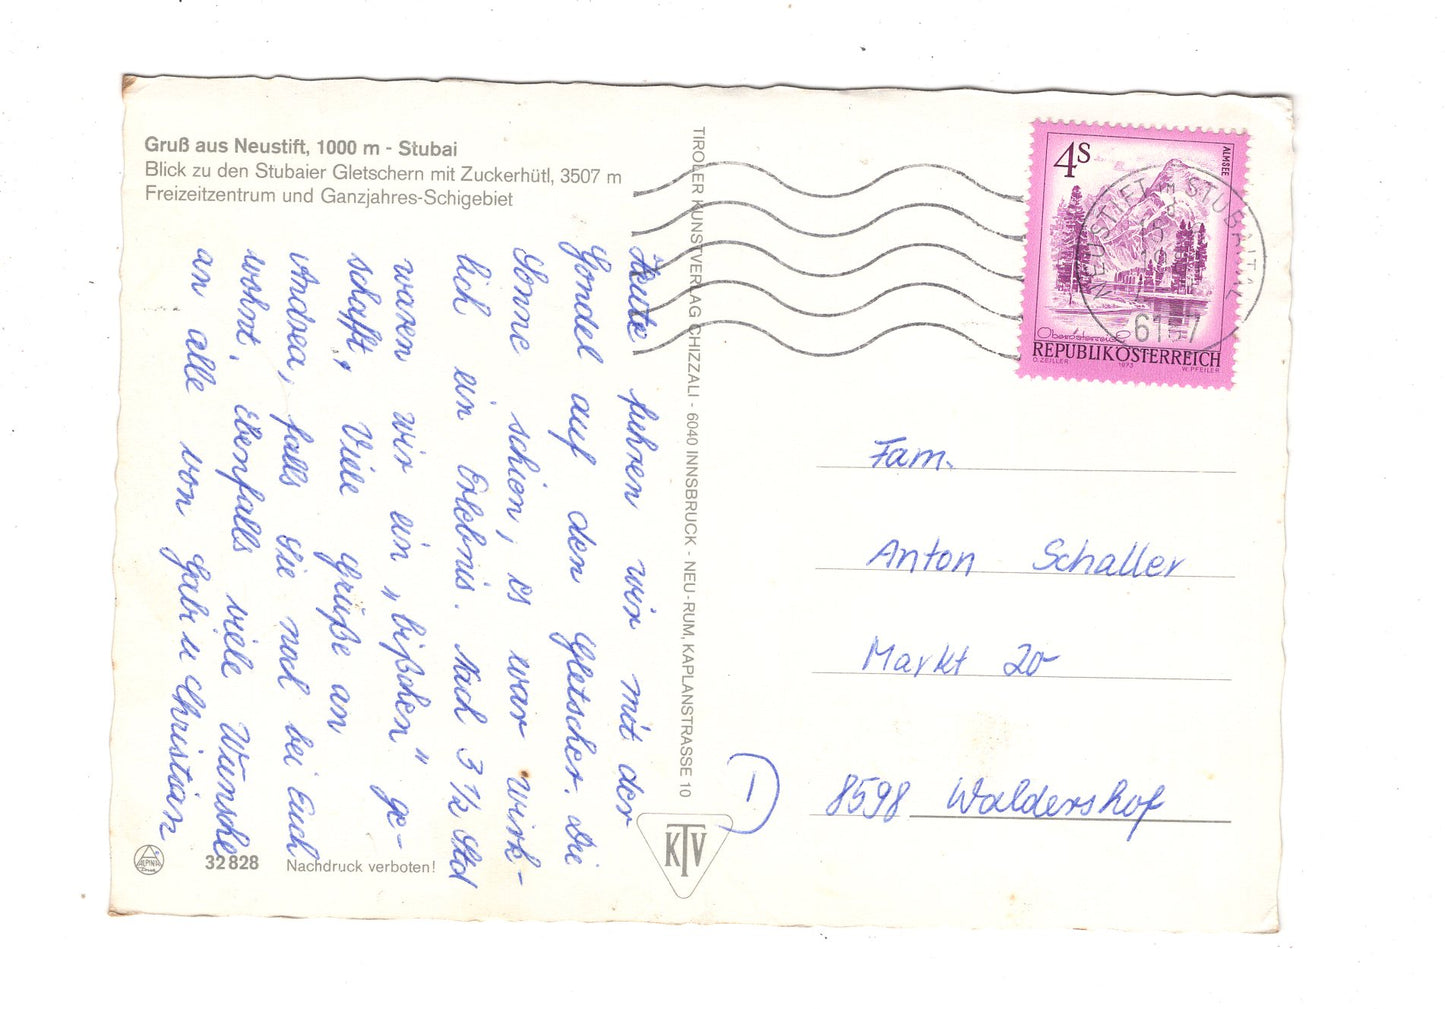 Gruß aus Neustift, 1000 m - Stubai
Blick zu den Stubaier Gletschern mit Zuckerhütl, 3507 m
Freizeitzentrum und Ganzjahres-Schigebiet
Heute fuhren wir mit der
Gondel auf den Gletscher. Die
Sonne schien, es war wirk-
lich ein Erlebnis. Nach 3 1/2 Std
waren wir ein „bißchen" ge-
schafft. Viele Grüße an
Andrea, falls Sie noch bei Euch
wohnt. Ebenfalls viele Wünsche
an alle von Gabi u Christian
TIROLER KUNSTVERLAG CHIZZALI - 6040 INNSBRUCK - NEU-RUM, KAPLANSTRASSE 10
4S
ALMSEE
Oberösterreich
REPUBLIK ÖSTERREICH
O. ZEILLER 1973 W. PFEILER
NEUSTIFT IM STUBAITAL
6167
Fam.
Anton Schaller
Markt 20
D 8598 Waldershof
KTV
ALPINA
32 828 Nachdruck verboten!